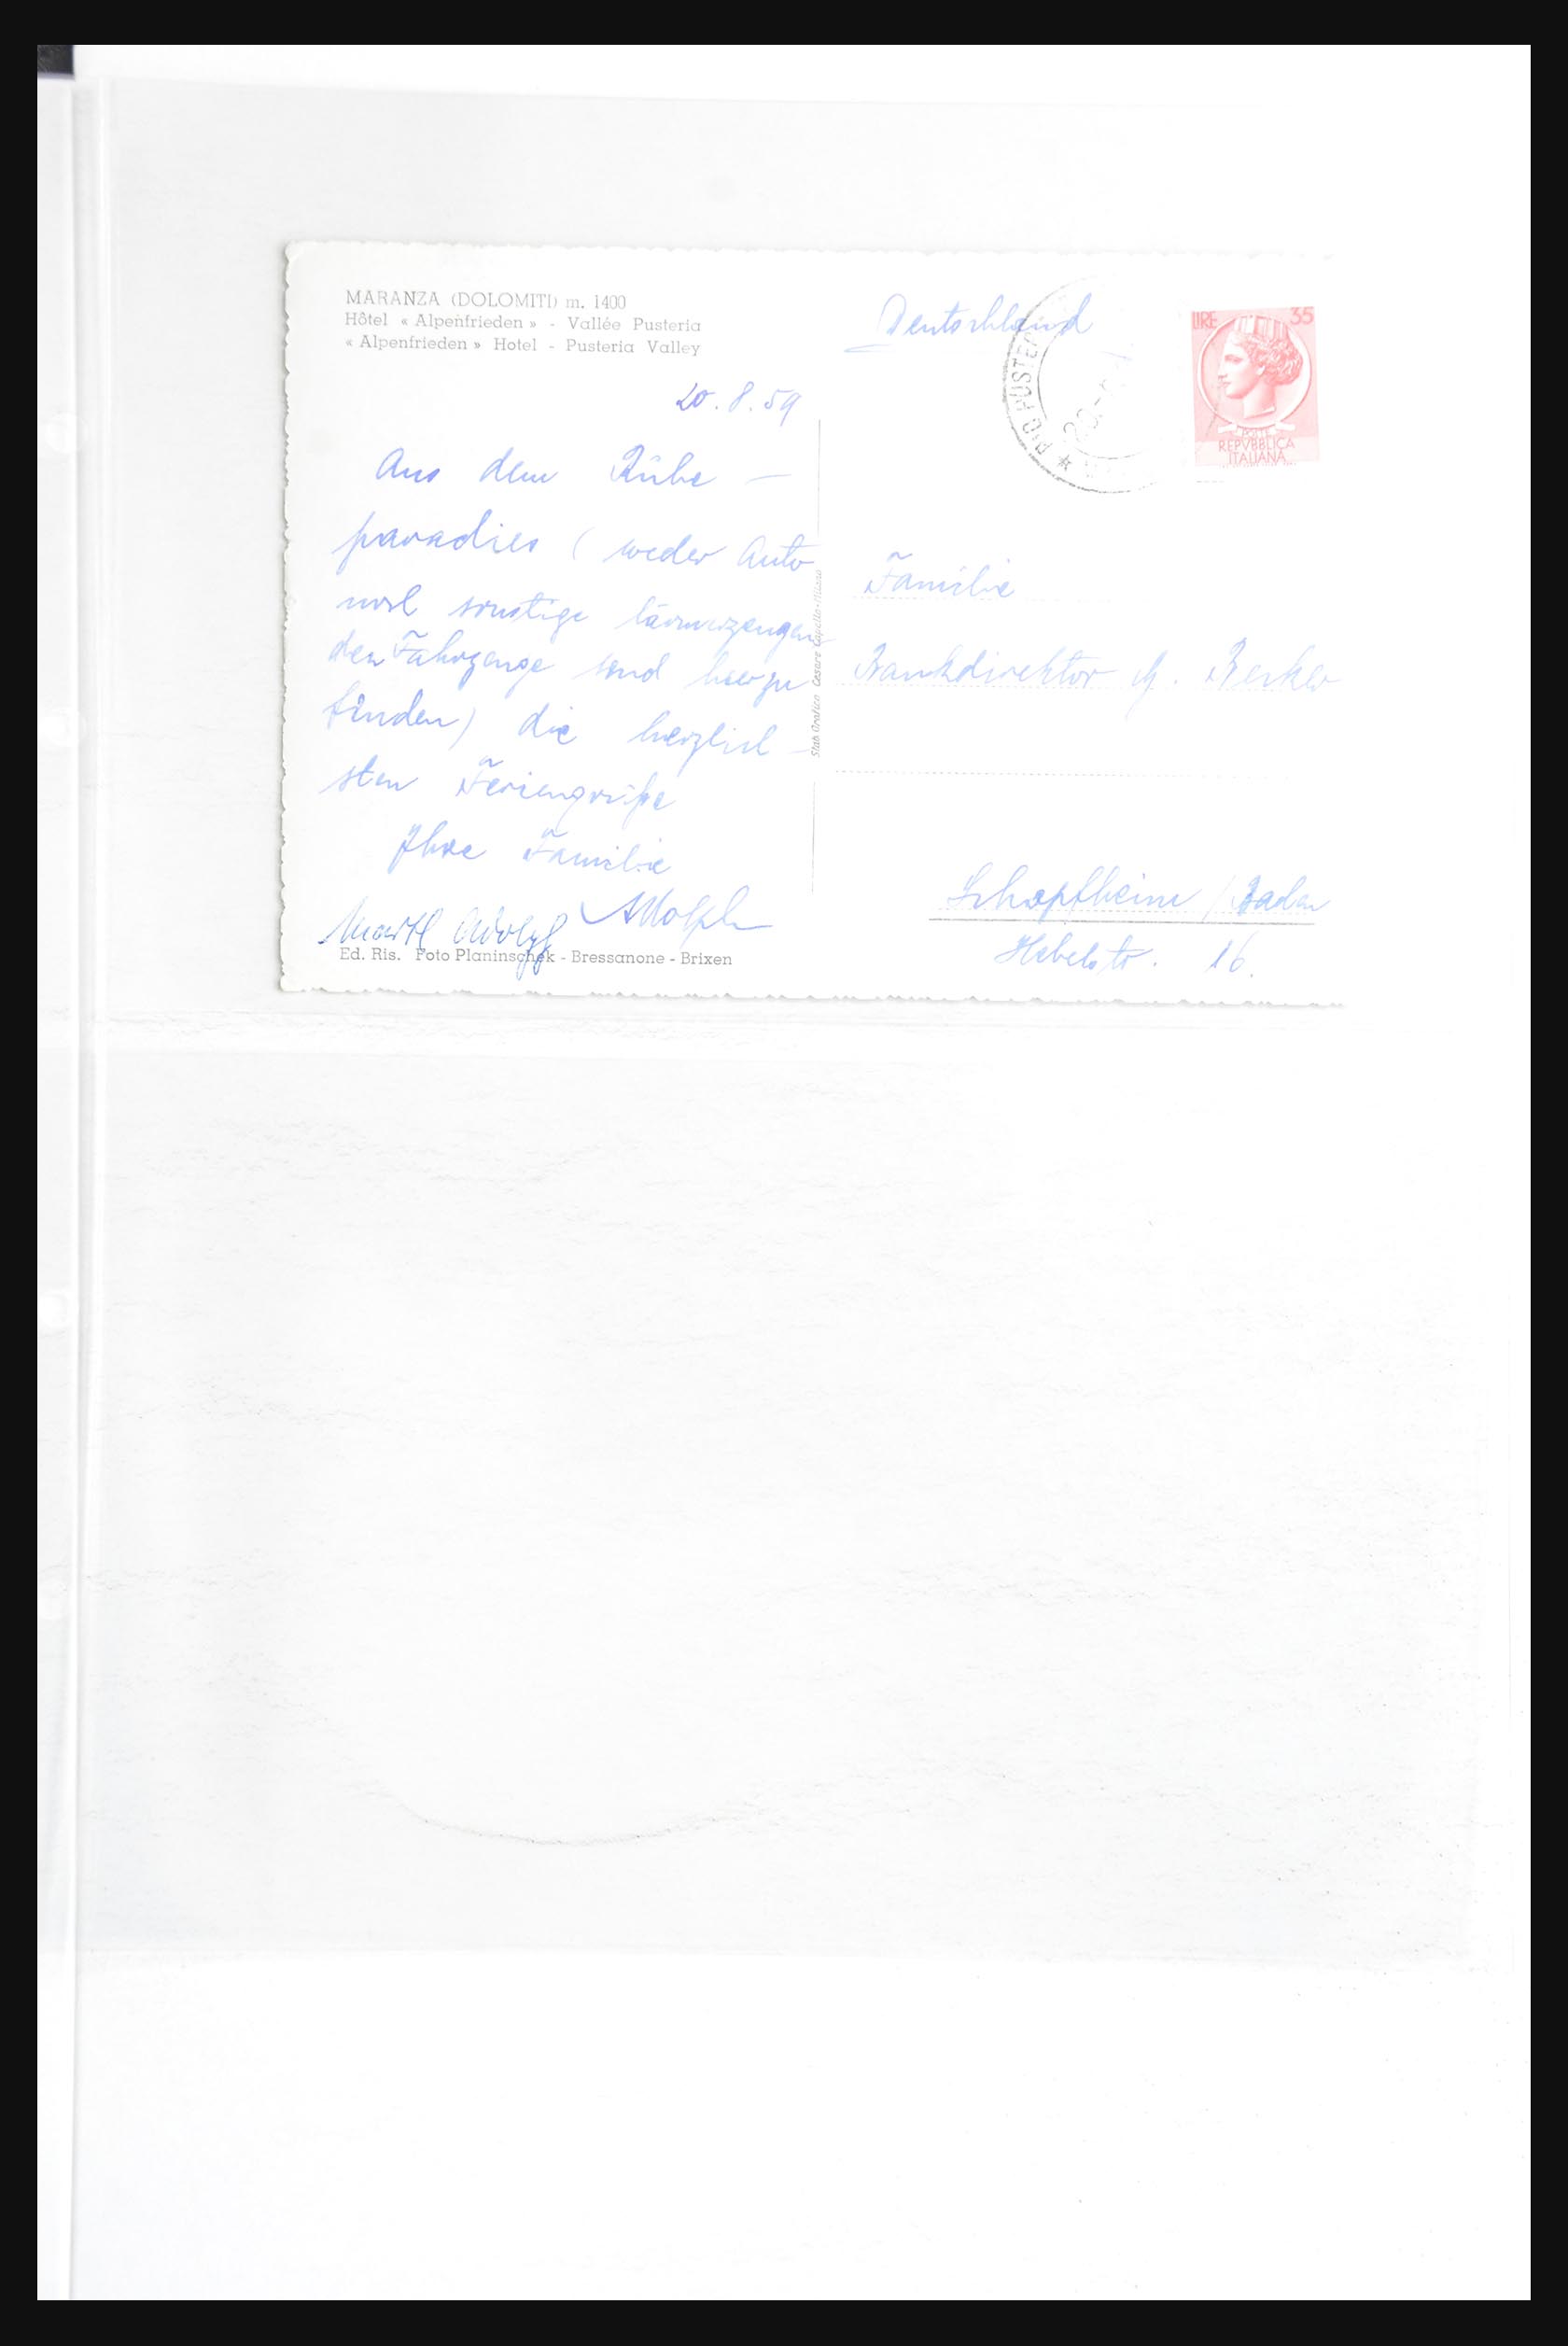 MARANZA (DOLOMITI) m. 1400
Hôtel « Alpenfrieden » - Vallée Pusteria
« Alpenfrieden » Hotel - Pusteria Valley
20.8.59
Aus dem Ruhe -
paradies (weder Auto
noch sonstige lärmerzeugen
den Fahrzeuge sind hier zu
finden) die herzlich -
sten Feriengrüße
Ihre Familie
Adolph
Adolph
Ed. Ris. Foto Planinschek - Bressanone - Brixen
Stab. Grafico Cesare Capello - Milano
Deutschland
PUSTE
LIRE 35
POSTE
REPVBBLICA
ITALIANA
Familie
Bankdirektor
Schopfheim / Baden
Hebelstr. 16.